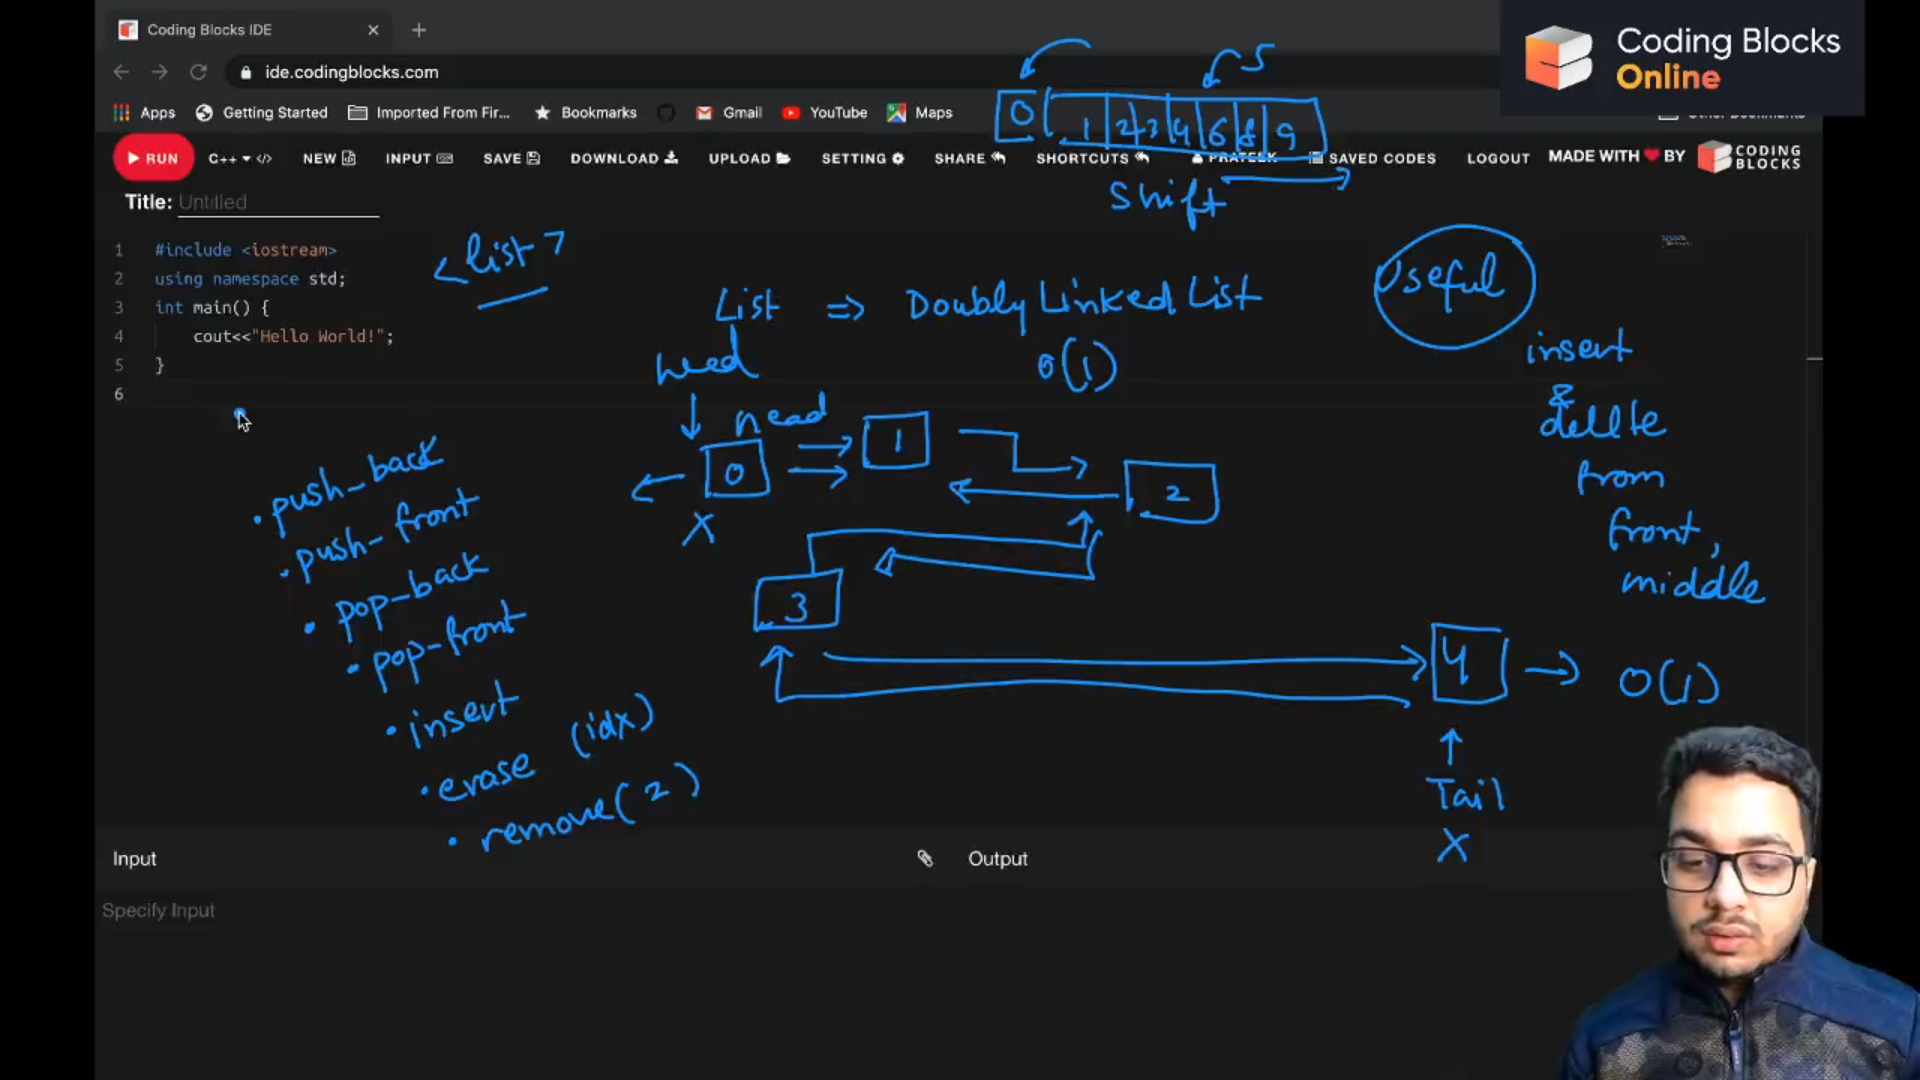 Coding Blocks IDE
ide.codingblocks.com
Apps Getting Started Imported From Fir... Bookmarks Gmail YouTube Maps
RUN C++ NEW INPUT SAVE DOWNLOAD UPLOAD SETTING SHARE SHORTCUTS PRATEEK SAVED CODES LOGOUT MADE WITH BY CODING BLOCKS
Coding Blocks
Online
5
0 1 2 3 4 6 8 9
Shift
Title: Untitled
1 #include <iostream>
2 using namespace std;
3 int main() {
4 cout<<"Hello World!";
5 }
6
<list>
List => Doubly Linked List
O(1)
Useful
insert
&
delete
from
front,
middle
head
head
0 1 2
X
3
4 O(1)
Tail
X
• push_back
• push-front
• pop-back
• pop-front
• insert
• erase (idx)
• remove(2)
Input
Output
Specify Input